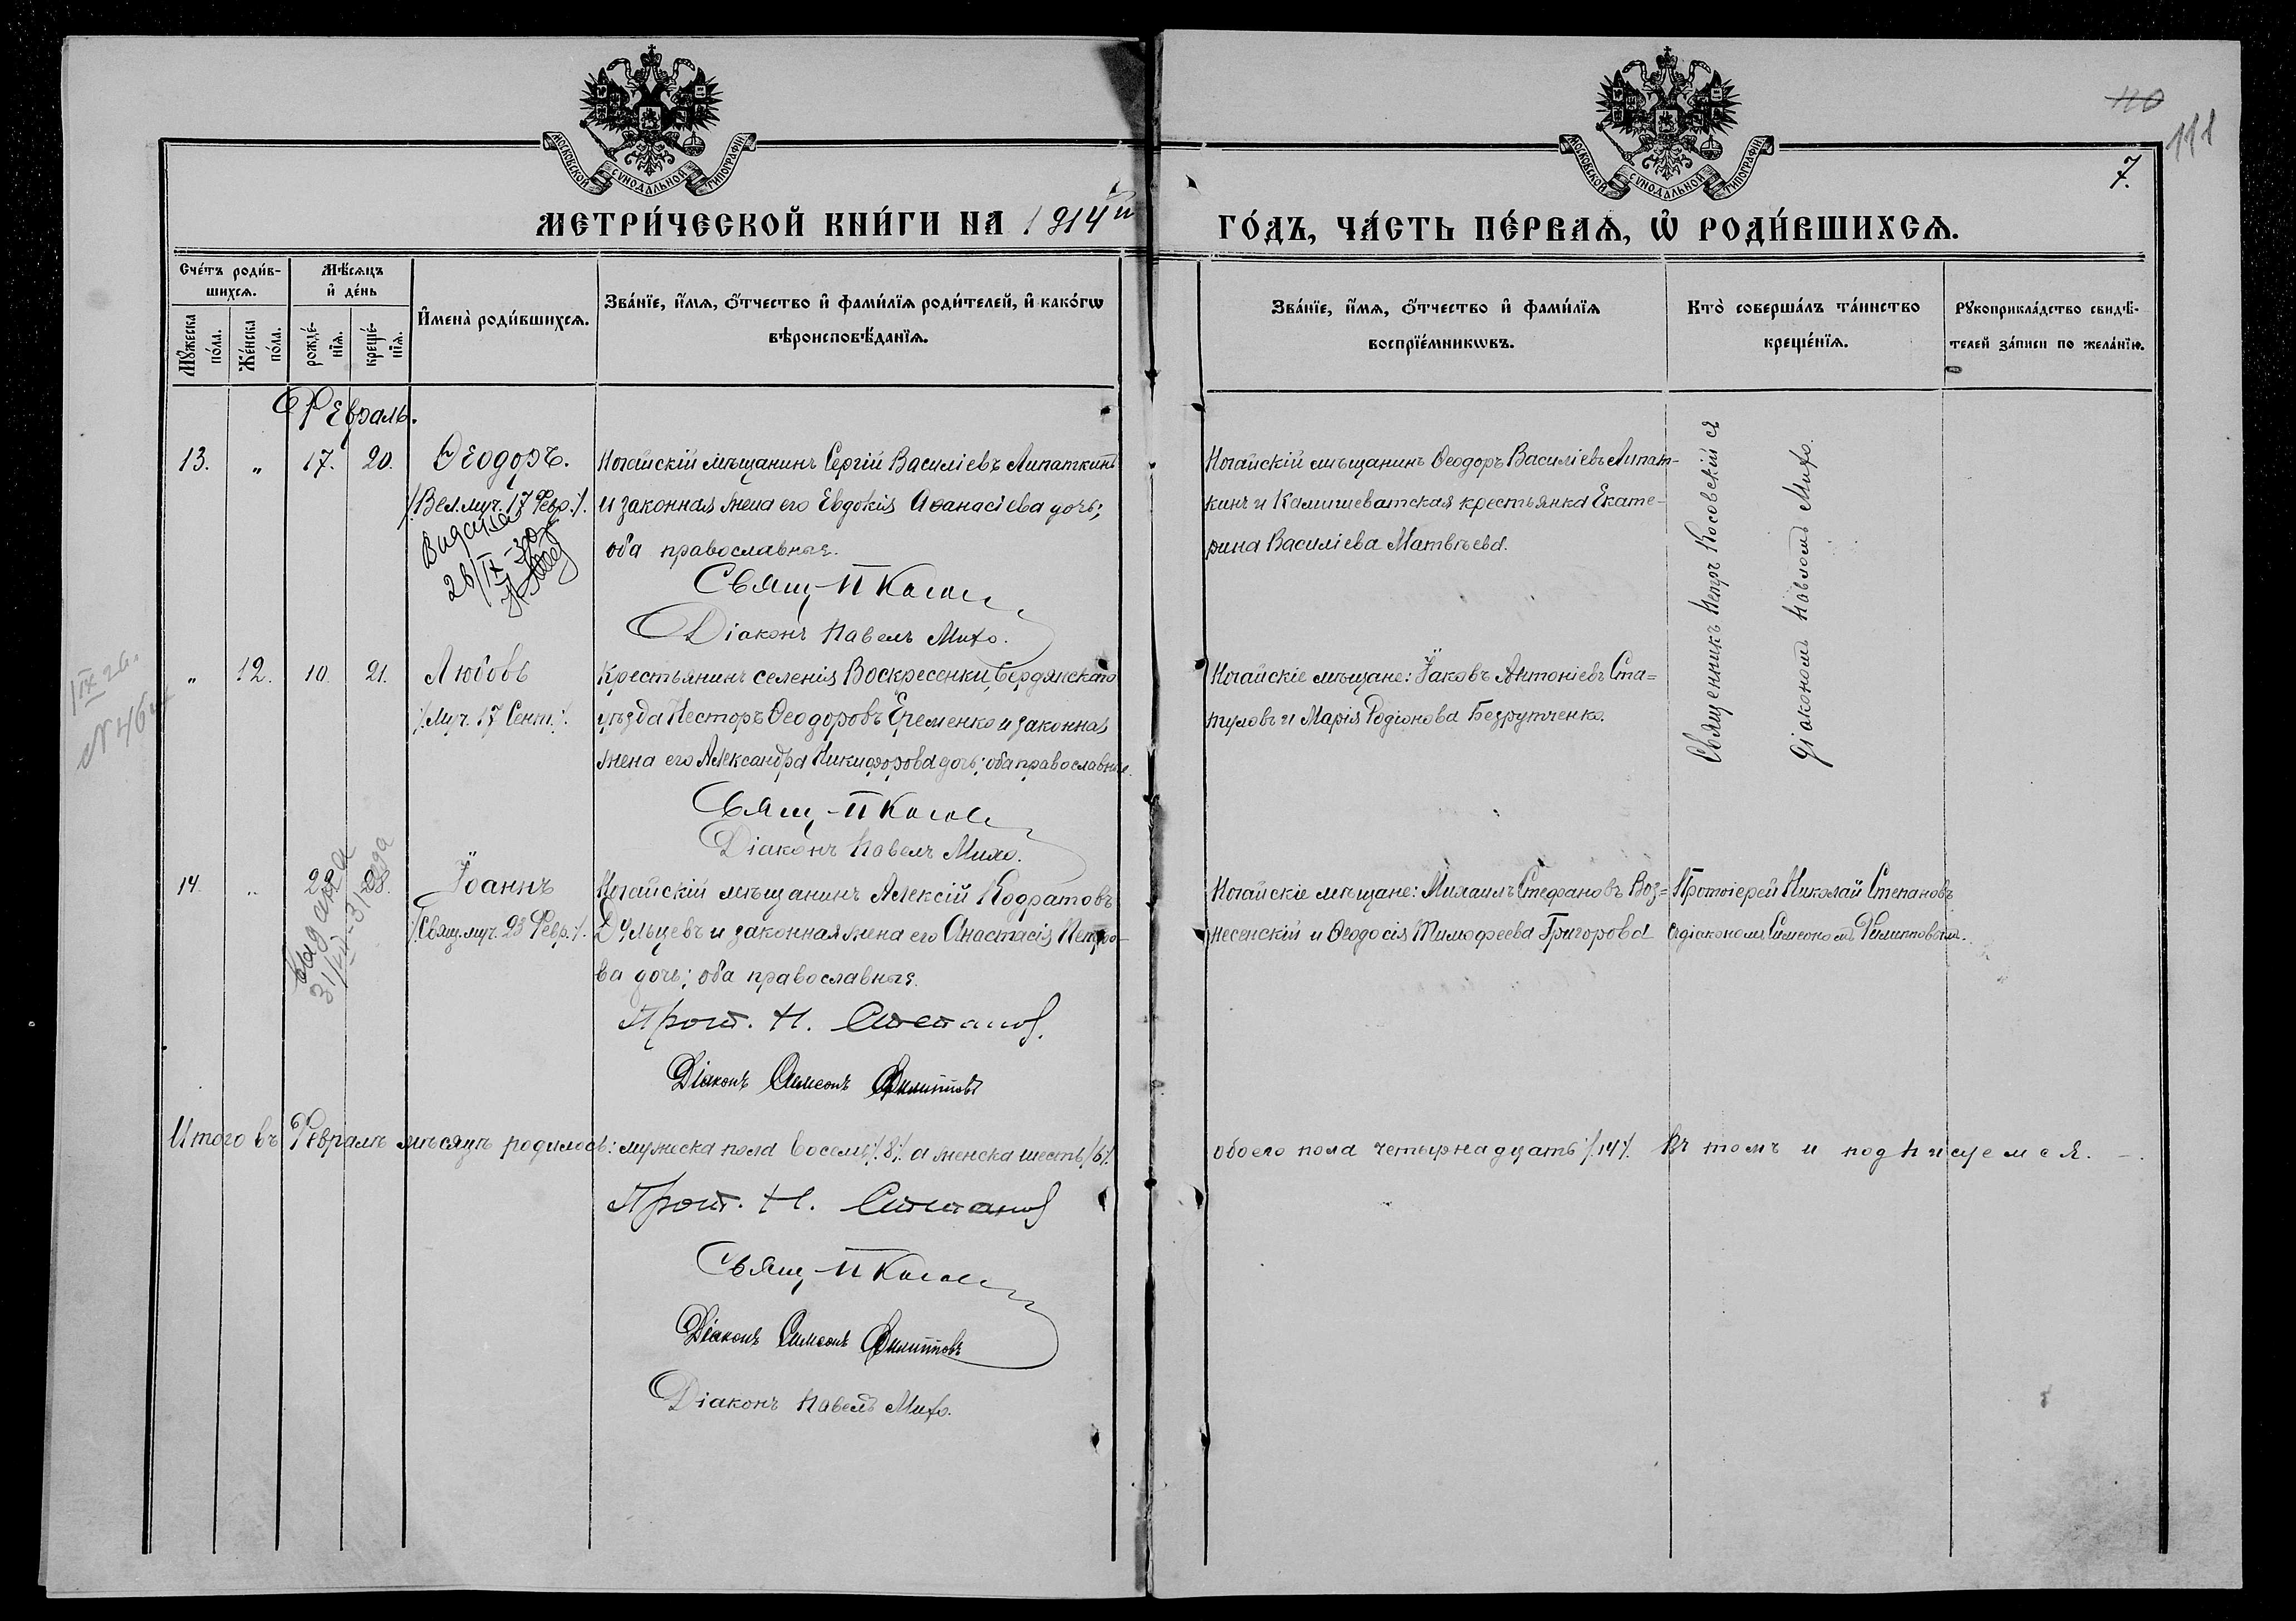 110
111
7.
МОСКОВСКОЙ СѴНОДАЛЬНОЙ ТИПОГРАФІИ
МОСКОВСКОЙ СѴНОДАЛЬНОЙ ТИПОГРАФІИ
МЕТРИ́ЧЕСКОЙ КНИ́ГИ НА 1914й
ГО́ДЪ, ЧА́СТЬ ПЕ́РВАѦ, Ѡ҆ РОДИ́ВШИХСѦ.
Сче́тъ роди́в-
шихсѧ.
Мꙋ́жеска по́ла.
Же́нска по́ла.
Мѣ́сѧцъ
и҆ де́нь
рожде́-
нїѧ.
креще́-
нїѧ.
И҆мена̀ роди́вшихсѧ.
Зва́нїе, и҆́мѧ, ѻ҆́тчество и҆ фами́лїѧ роди́телей, и҆ како́гѡ
вѣроисповѣ́данїѧ.
Зва́нїе, и҆́мѧ, ѻ҆́тчество и҆ фами́лїѧ
воспрїе́мникѡвъ.
Кто̀ соверша́лъ та́инство
креще́нїѧ.
Рꙋкоприкла́дство свидѣ́-
телей за́писи по жела́нїю.
Февраль.
13. „ 17. 20. Ѳеодоръ.
/Вел.муч. 17 Февр./.
Видана
28/IX-30г
Ногайскій мѣщанинъ Сергій Василіевъ Липаткинъ
и законная жена его Евдокія Аѳанасіева дочь;
оба православные.
Свящ. П Косов
Діаконъ Павелъ Михо.
Ногайскій мѣщанинъ Ѳеодоръ Василіевъ Липат-
кинъ и Камышеватская крестьянка Екате-
рина Василіева Матвѣева.
Священникъ Петръ Косовскій съ
діакономъ Павломъ Михо.
IX 26.
N 46
„ 12. 10. 21. Любовь
/Муч. 17 Сент./.
Крестьянинъ селенія Воскресенки, Бердянскаго
уѣзда Несторъ Ѳеодоровъ Еременко и законная
жена его Александра Никифорова дочь; оба православные.
Свящ. П Косов
Діаконъ Павелъ Михо.
Ногайскіе мѣщане: Іаковъ Антоніевъ Ста-
туловъ и Марія Родіонова Безрутченко.
14. „ 22. 28. Іоаннъ
/Свящ.муч. 23 Февр./.
выдана
31/VII-31 года
Ногайскій мѣщанинъ Алексій Кодратовъ
Дульцевъ и законная жена его Анастасія Петро-
ва дочь; оба православные.
Прот. Н. Степанов.
Діаконъ Симеонъ Филипповъ
Ногайскіе мѣщане: Михаилъ Стефановъ Воз-
несенскій и Ѳеодосія Тимофеева Григорова
Протоіерей Николай Степановъ
съ діакономъ Симеономъ Филипповымъ.
Итого въ Февралѣ мѣсяцѣ родилось: мужеска пола восемь /8/. а женска шесть /6/.
обоего пола четырнадцать /14/. Въ томъ и подписуемся.
Прот. Н. Степанов
Свящ. П Косов
Діаконъ Симеонъ Филипповъ
Діаконъ Павелъ Михо.